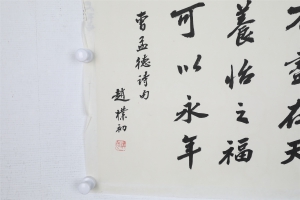 不盡在天
養怡之福
可以永年
曹孟德诗句
趙樸初